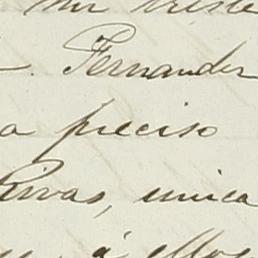 mi triste
Fernandez
a preciso
Rivas, unica
á ellos